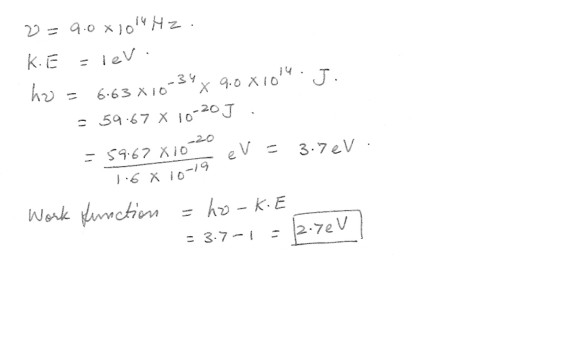 ν = 9.0 × 10¹⁴ Hz.
K.E = 1eV.
hν = 6.63 × 10⁻³⁴ × 9.0 × 10¹⁴. J.
= 59.67 × 10⁻²⁰ J.
= 59.67 × 10⁻²⁰ / 1.6 × 10⁻¹⁹ eV = 3.7 eV.
Work function = hν - K.E
= 3.7 - 1 = 2.7eV